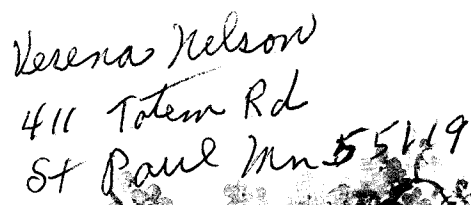 Verena Nelson
411 Totem Rd
St Paul Mn 55119